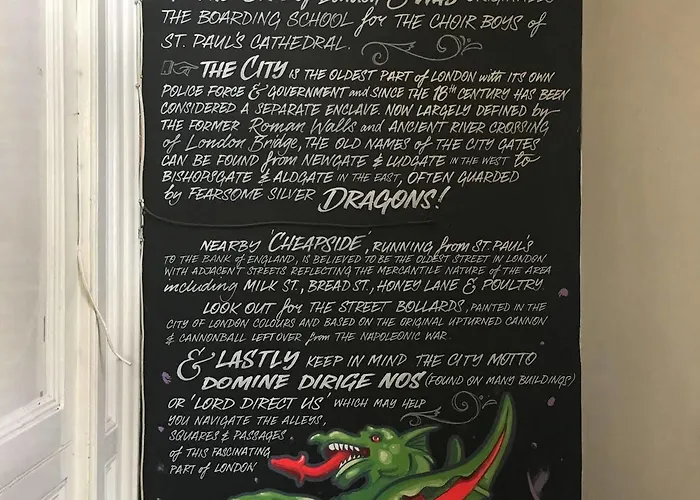 THE BOARDING SCHOOL for THE CHOIR BOYS of
ST. PAUL'S CATHEDRAL.
THE CITY IS THE OLDEST PART of LONDON with ITS OWN
POLICE FORCE & GOVERNMENT and SINCE THE 18th CENTURY HAS BEEN
CONSIDERED A SEPARATE ENCLAVE. NOW LARGELY DEFINED by
THE FORMER Roman Walls and ANCIENT RIVER CROSSING
of London Bridge, THE OLD NAMES of THE CITY GATES
CAN BE FOUND from NEWGATE & LUDGATE IN THE WEST to
BISHOPSGATE & ALDGATE IN THE EAST, OFTEN GUARDED
by FEARSOME SILVER DRAGONS!
NEARBY 'CHEAPSIDE', RUNNING from ST. PAUL'S
TO THE BANK of ENGLAND, IS BELIEVED TO BE THE OLDEST STREET IN LONDON
WITH ADJACENT STREETS REFLECTING THE MERCANTILE NATURE of THE AREA
including MILK ST., BREAD ST., HONEY LANE & POULTRY.
LOOK OUT for THE STREET BOLLARDS, PAINTED IN THE
CITY OF LONDON COLOURS AND BASED ON THE ORIGINAL UPTURNED CANNON
& CANNONBALL LEFTOVER from THE NAPOLEONIC WAR.
& LASTLY KEEP IN MIND THE CITY MOTTO
DOMINE DIRIGE NOS (FOUND ON MANY BUILDINGS)
OR 'LORD DIRECT US' WHICH MAY HELP
YOU NAVIGATE THE ALLEYS,
SQUARES & PASSAGES
of THIS FASCINATING
PART of LONDON